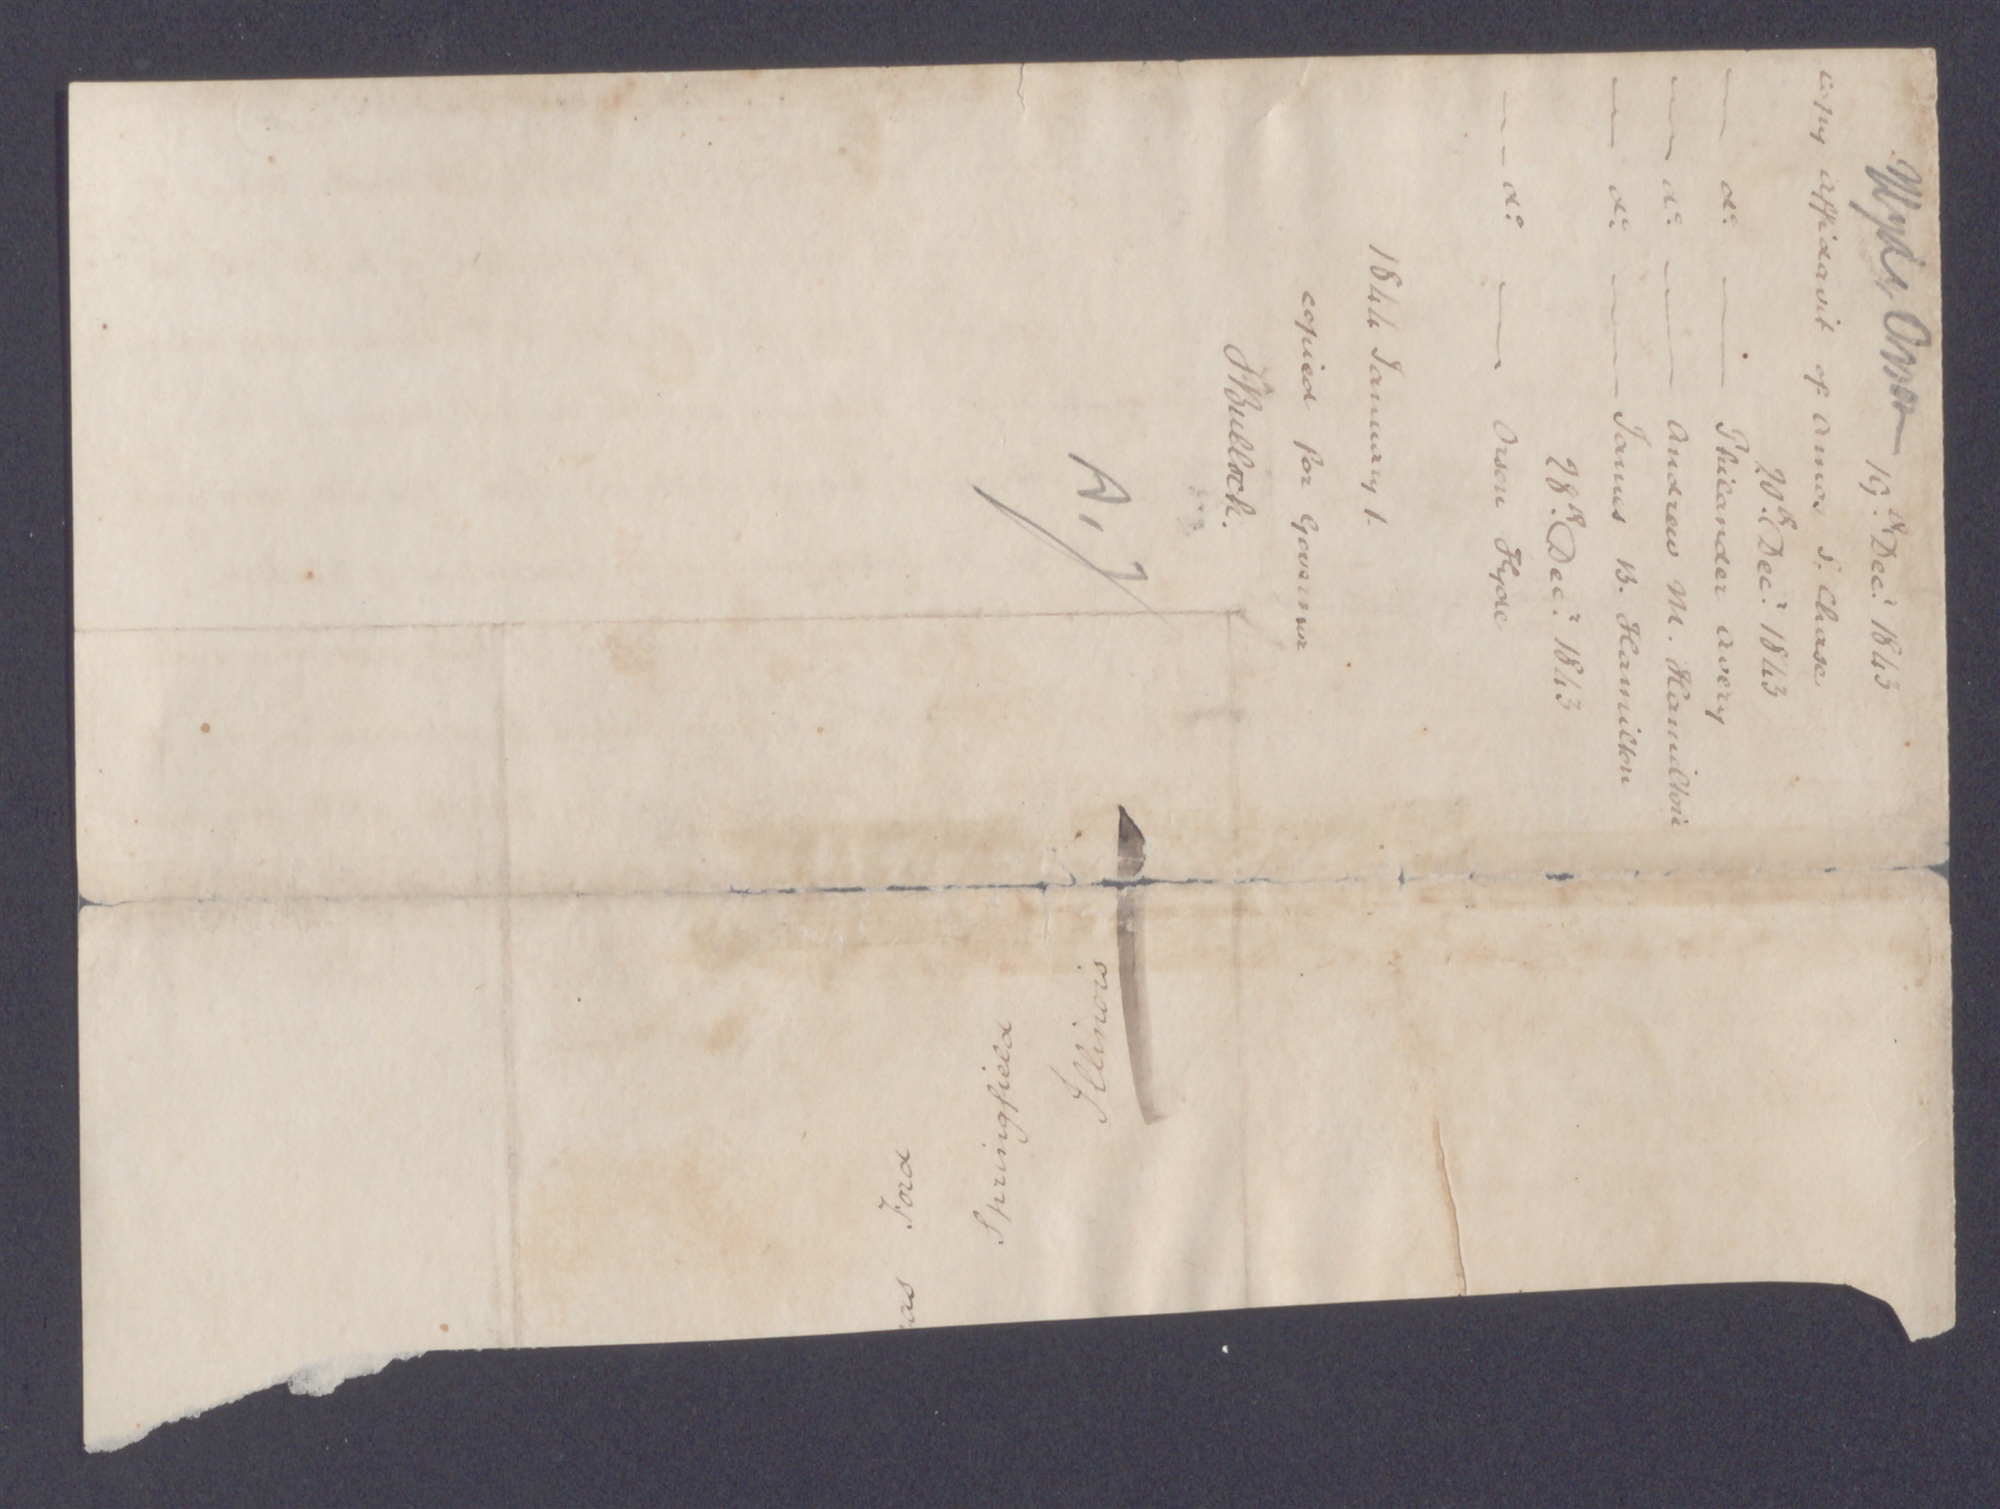 19th. Decr. 1843
copy affidavit of Amos S. Chase
20th. Decr. 1843
— do. — Philander Avery
— do. — Andrew M. Hamilton
— do. — James B. Hamilton
28th. Decr. 1843
— do. — Orson Hyde
1844 January 1.
copied for Governor
TBullock.
as Ford
Springfield
Illinois